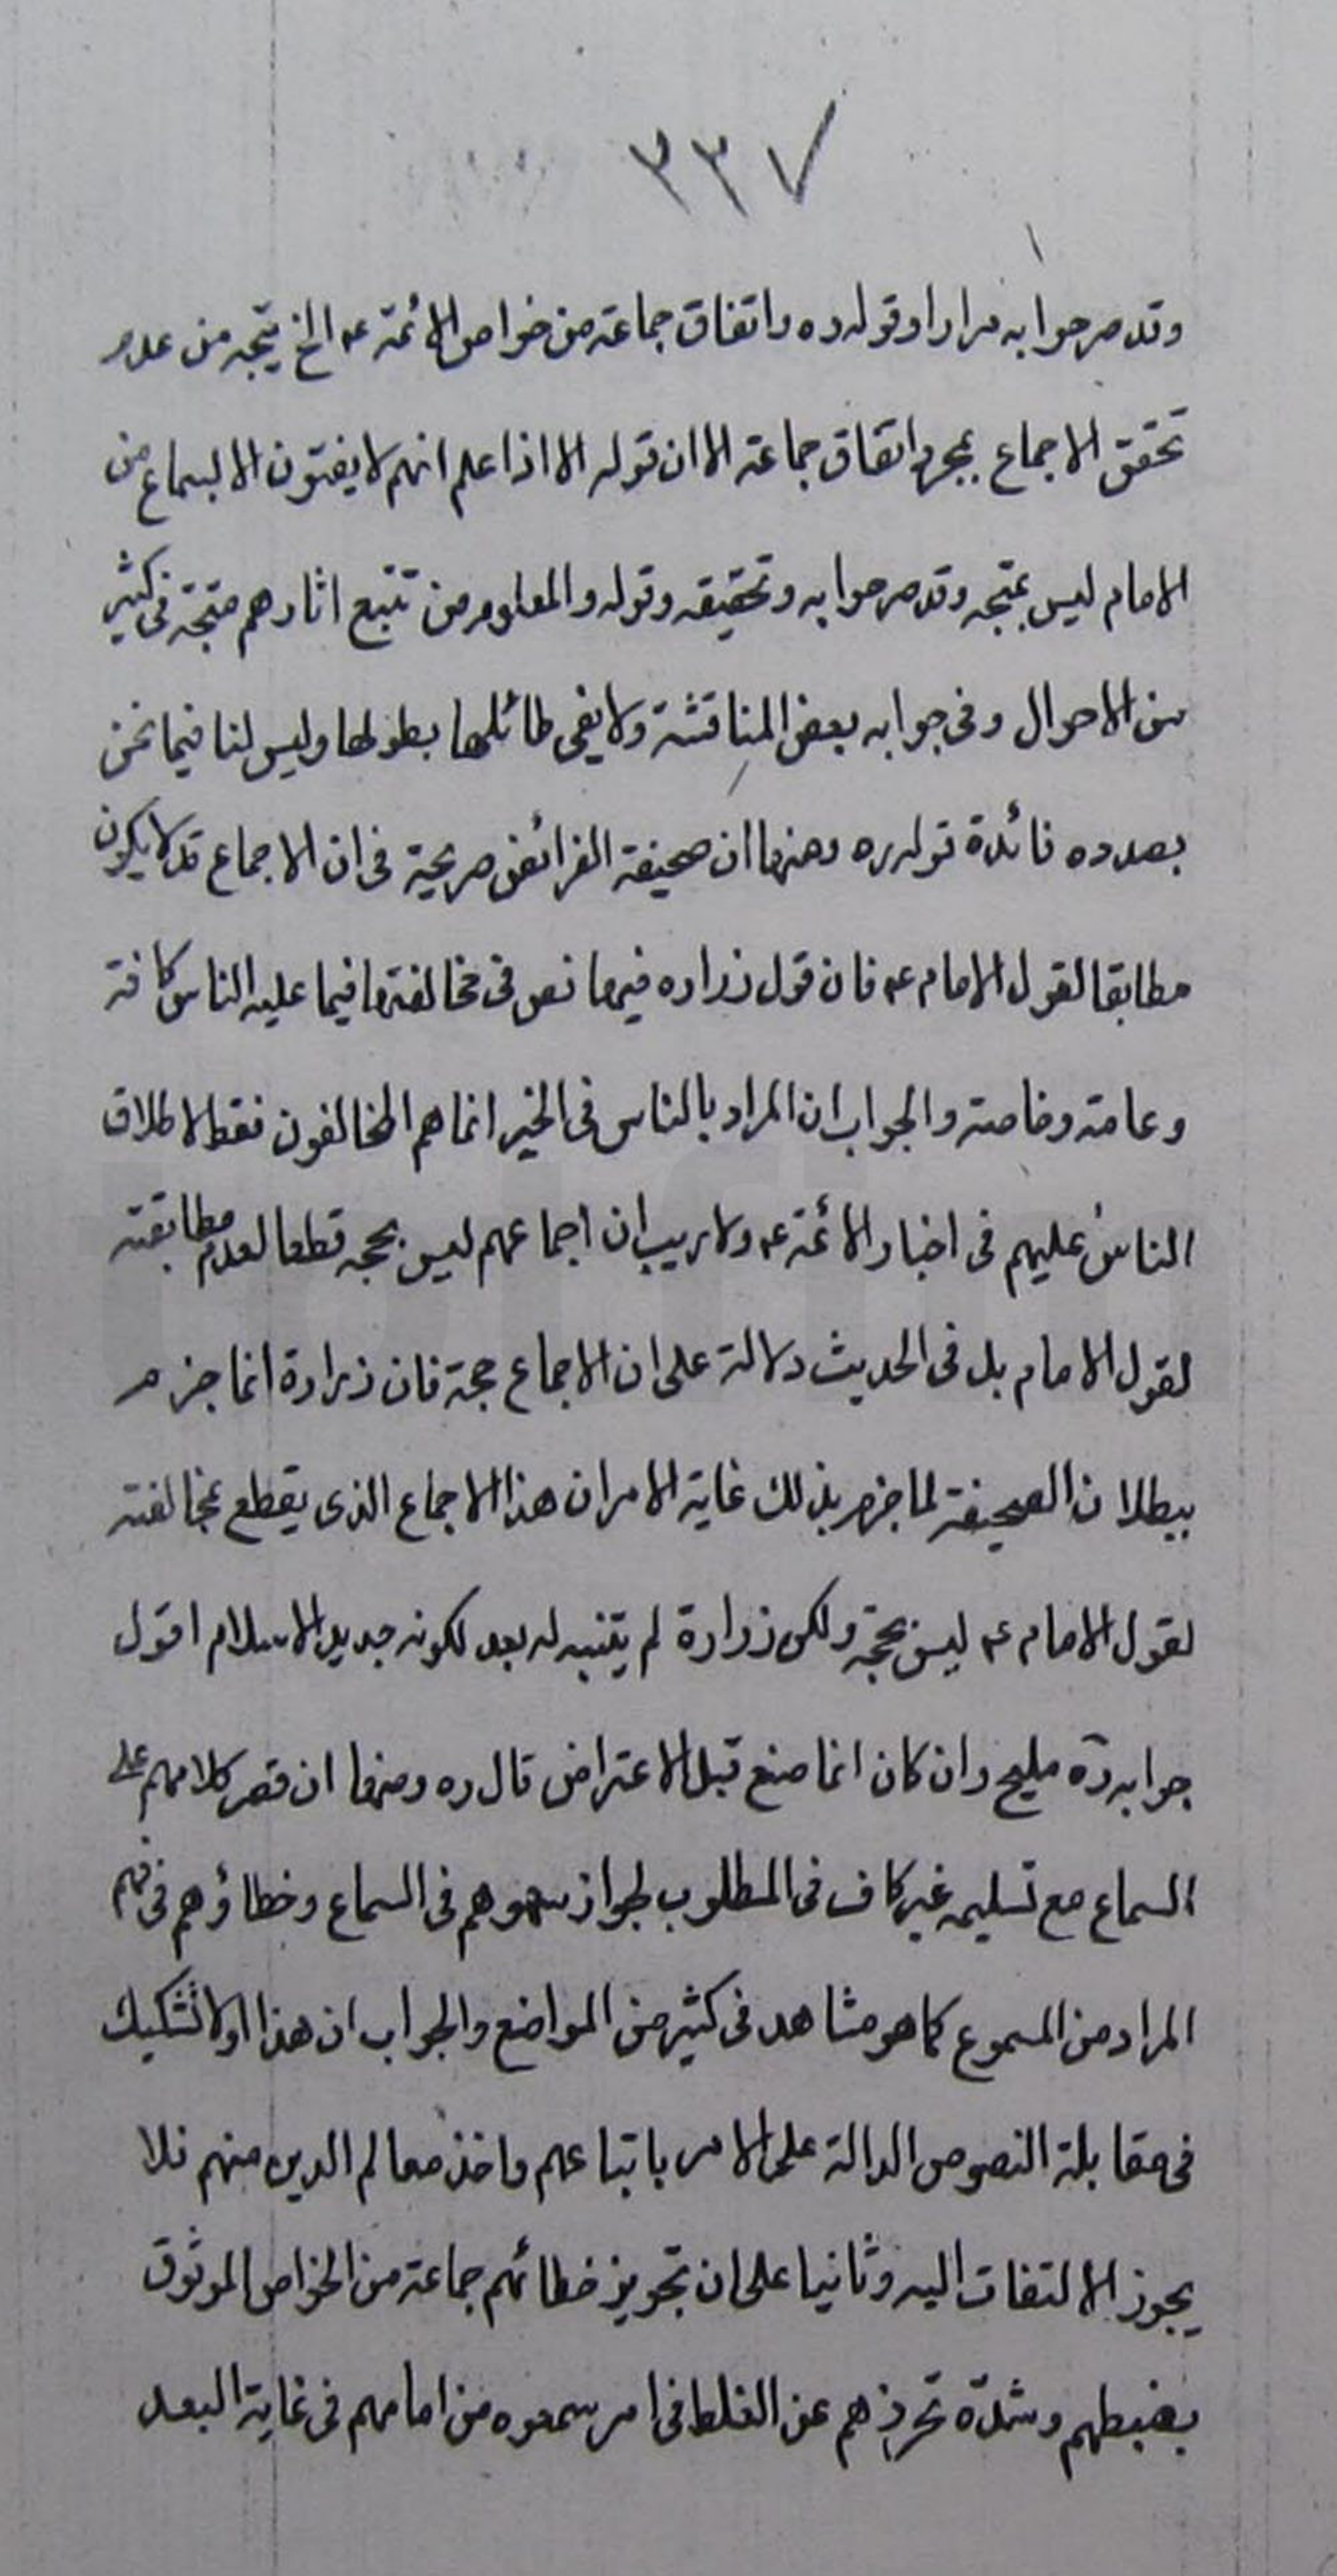 ٣٣٧
وقد مر جوابه مرارا وقوله ره واتفاق جماعة من خواص الائمة ع الخ يتجه من عدم
تحقق الاجماع بمجرد اتفاق جماعة الا ان قوله الا اذا علم انهم لا يفتون الا لسماع من
الامام ليس بمتجه وقد مر جوابه وتحقيقه وقوله والمعلوم من تتبع اثارهم متجه في كثير
من الاحوال وفي جوابه بعض المناقشة ولا يفى طائلها بطولها وليس لنا فيما نحن
بصدده فائدة قوله ره ومنها ان صحيفة الفرائض صريحة في ان الاجماع قد لا يكون
مطابقا لقول الامام ع فان قول زراره فيها نص في مخالفتها فيما عليه الناس كافة
وعامة وخاصة والجواب ان المراد بالناس في الخبر انما هم المخالفون فقط لاطلاق
الناس عليهم في اخبار الائمة ع ولا ريب ان اجماعهم ليس بحجه قطعا لعدم مطابقته
لقول الامام بل في الحديث دلالة على ان الاجماع حجة فان زرارة انما جزم
ببطلان الصحيفة لما جزم بذلك غاية الامر ان هذا الاجماع الذى يقطع بمخالفته
لقول الامام ع ليس بحجة ولكن زرارة لم يتنبه له بعد لكونه جديد الاسلام اقول
جوابه ره مليح وان كان انما صنع قبل الاعتراض قال ره ومنها ان قصر كلامهم على
السماع مع تسليمه غير كاف في المطلوب لجواز سهوهم في السماع وخطاؤهم في فهم
المراد من المسموع كما هو مشاهد في كثير من المواضع والجواب ان هذا اولا تشكيك
في مقابلة النصوص الدالة على الامر باتباعهم واخذ معالم الدين منهم فلا
يجوز الالتفات اليه وثانيا على ان تجويز خطائهم جماعة من الخواص الموثوق
بضبطهم وشدّة تحرزهم عن الغلط في امر سمعوه من امامهم في غاية البعد